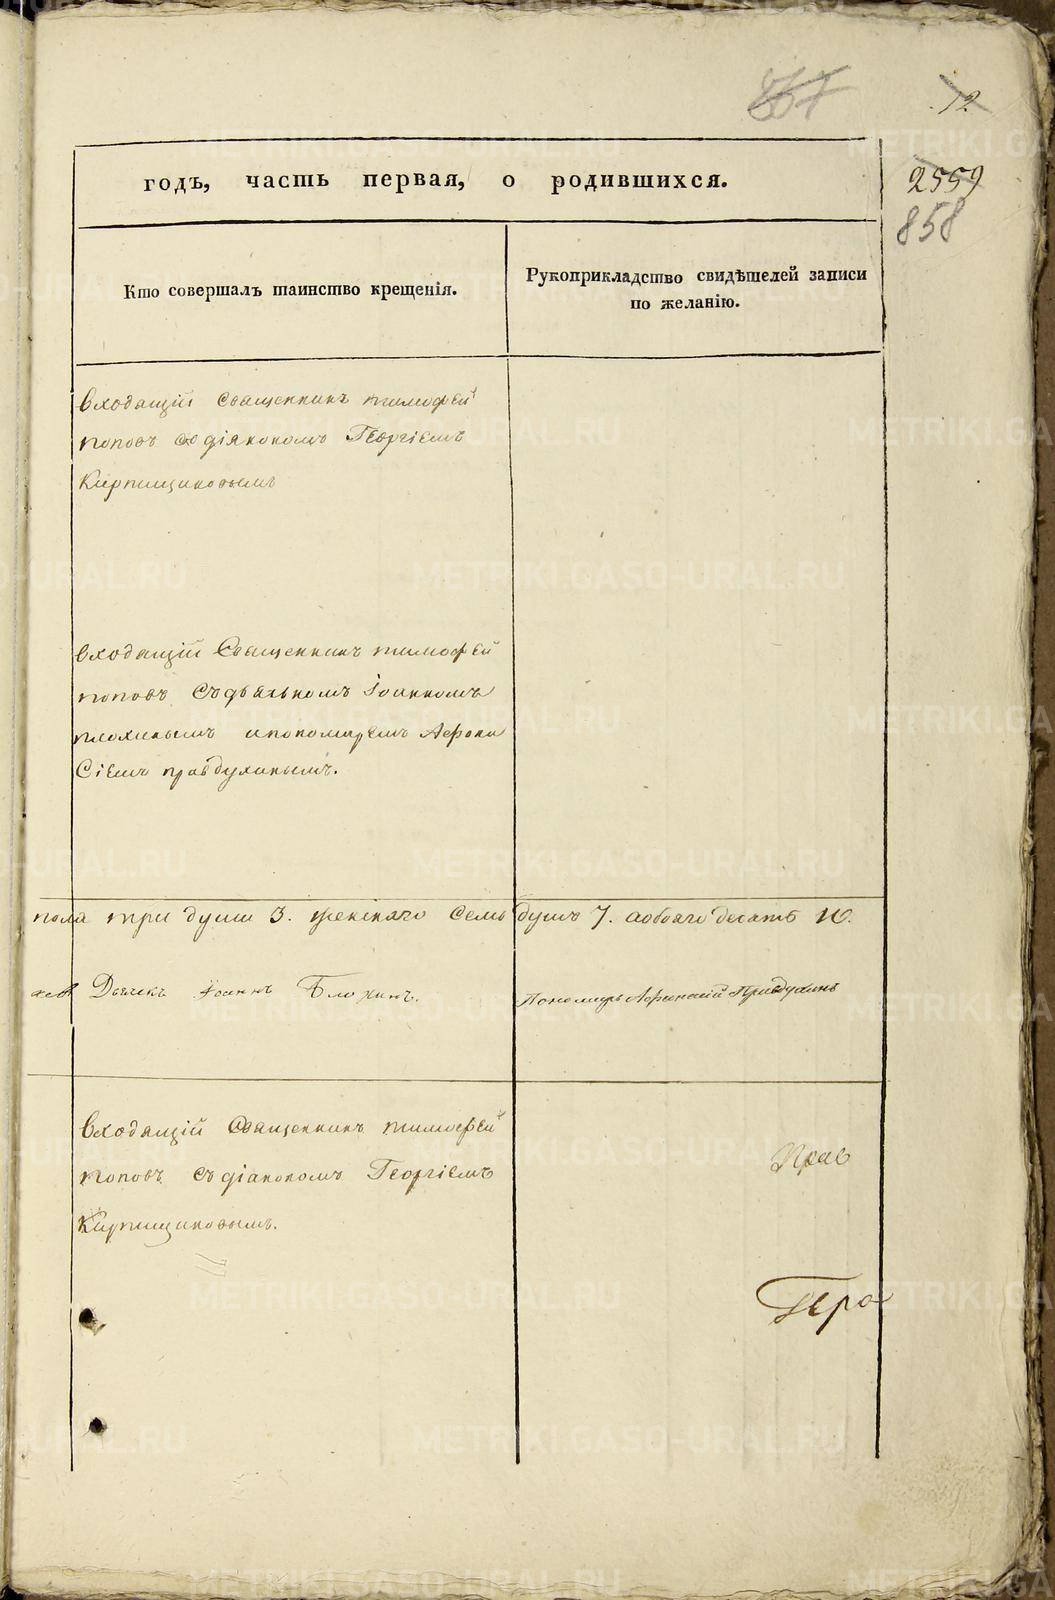 857
12
годъ, часть первая, о родившихся.
2559
858
Кто совершалъ таинство крещенія.
Рукоприкладство свидѣтелей записи
по желанію.
входящій Священникъ тимофей
поповъ со діякономъ Георгіемъ
Кирпищиковымъ
входящій Священникъ тимофей
поповъ съ дьячькомъ Іоанномъ
плохинымъ ипономаремъ Афона
Сіемъ правдухинымъ.
пола три души 3. женскаго семь душъ 7. аобоего десять 10.
Дьячекъ Іоаннъ Плохинъ.
Пономарь Афанасій Правдухинъ
входящій Священникъ тимофей
поповъ съ діакономъ Георгіемъ
Кирпищиковымъ.
Прав
Геро
METRIKI.GASO-URAL.RU